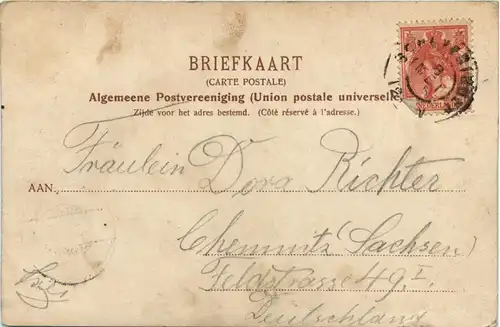 BRIEFKAART
(CARTE POSTALE)
Algemeene Postvereeniging (Union postale universelle)
Zijde voor het adres bestemd. (Côté réservé à l'adresse.)
Fräulein Dora Richter
AAN,
Chemnitz (Sachsen)
Feldstrasse 49. I.
Deutschland